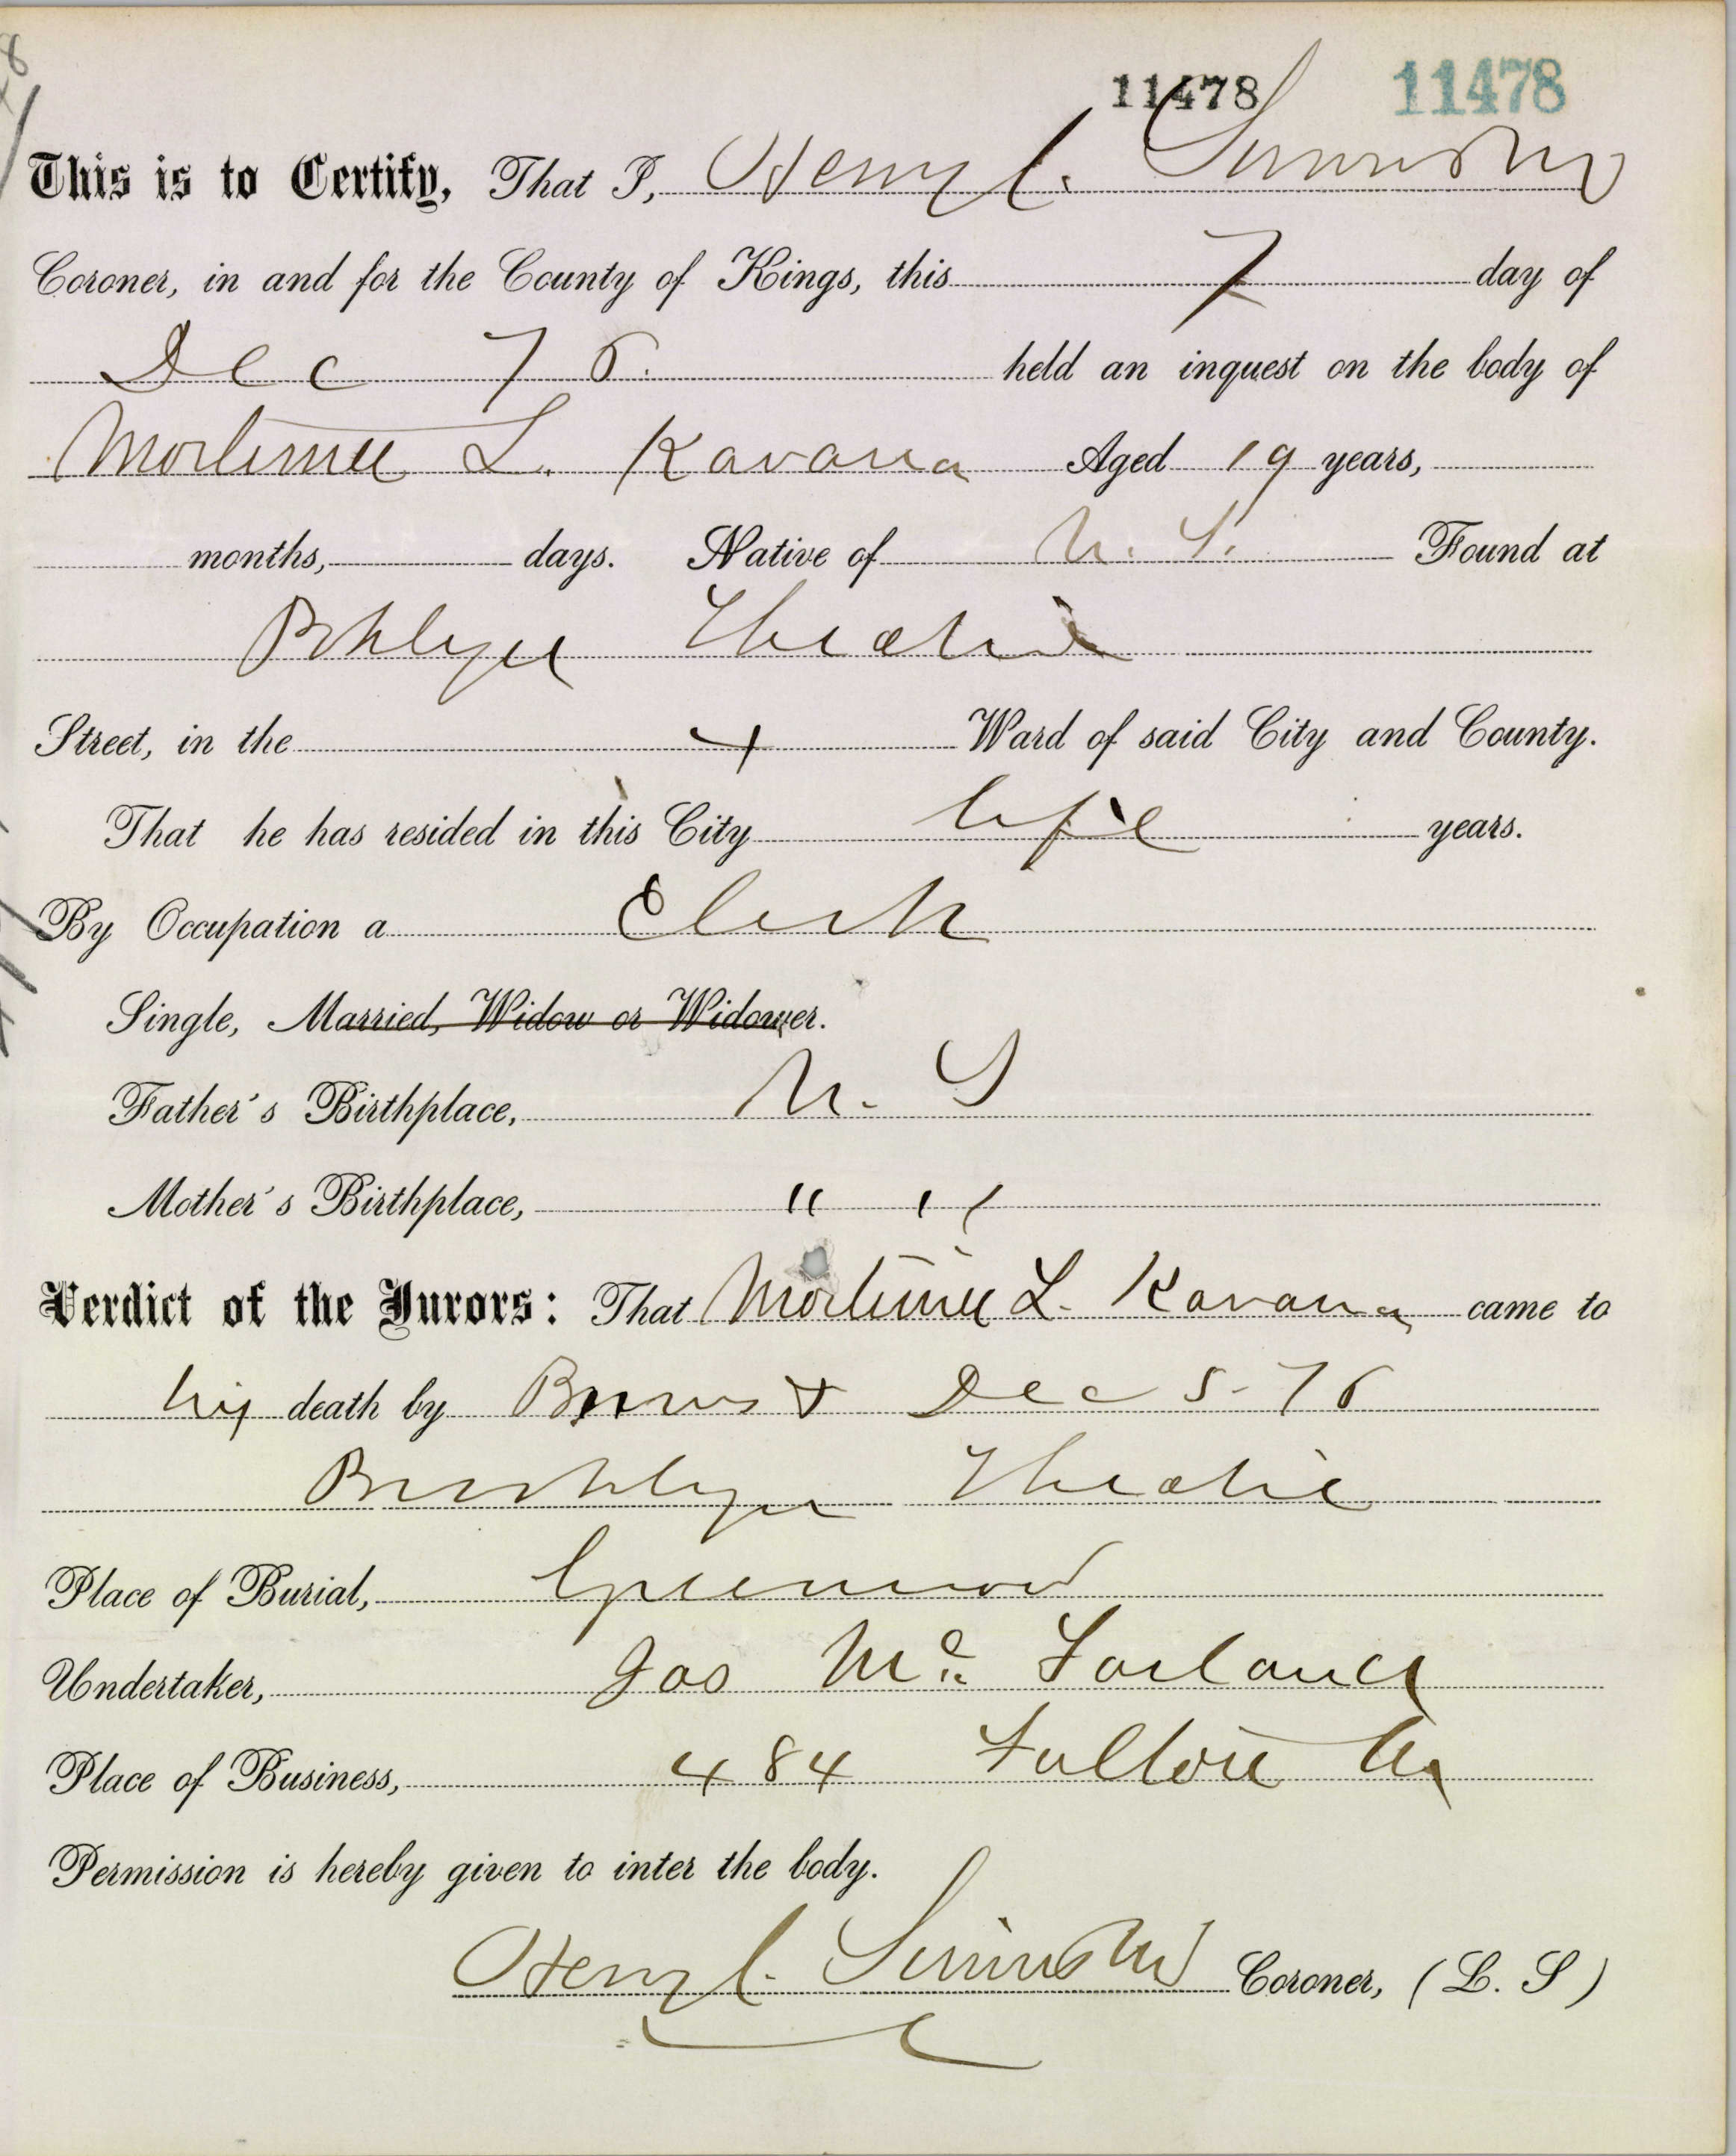 11478 11478
This is to Certify, That I, Henry C. Simms
Coroner, in and for the County of Kings, this 7 day of
Dec 76. held an inquest on the body of
Mortimer L. Kavana Aged 19 years,
months, days. Native of U. S. Found at
Bklyn Theatre
Street, in the 4 Ward of said City and County.
That he has resided in this City life years.
By Occupation a Clerk
Single, Married, Widow or Widower.
Father's Birthplace, U. S
Mother's Birthplace, " "
Verdict of the Jurors: That Mortimer L. Kavana came to
his death by Burns & Dec 5-76
Brooklyn Theatre
Place of Burial, Greenwood
Undertaker, Jas Mc Farland
Place of Business, 484 Fulton
Permission is hereby given to inter the body.
Henry C. Simms Coroner, (L. S)